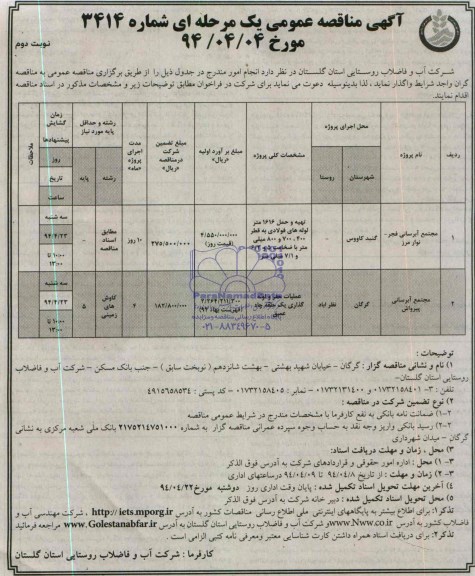 آگهی مناقصه عمومی یک مرحله ای شماره ۳۴۱۴
مورخ ۹۴/۰۴/۰۴
نوبت دوم
شرکت آب و فاضلاب روستایی استان گلستان در نظر دارد انجام امور مندرج در جدول ذیل را از طریق برگزاری مناقصه عمومی به مناقصه
گران واجد شرایط واگذار نماید، لذا بدینوسیله دعوت می نماید برای شرکت در فراخوان مطابق توضیحات زیر و مشخصات مذکور در اسناد مناقصه
اقدام نمایند.
ردیف
نام پروژه
محل اجرای پروژه
شهرستان
روستا
مشخصات کلی پروژه
مبلغ برآورد اولیه «ریال»
مبلغ تضمین شرکت درمناقصه «ریال»
مدت اجرای پروژه «ماه»
رشته و حداقل پایه مورد نیاز
رشته
پایه
زمان گشایش پیشنهادها
روز
تاریخ
ساعت
ملاحظات
۱
مجتمع آبرسانی فجر- نوار مرز
گنبد کاووس
-
تهیه و حمل ۱۶۱۶ متر لوله های فولادی به قطر ۴۰۰، ۷۰۰ و ۸۰۰ میلی متر با ضخامت
و ۷/۱
۴/۵۵۰/۰۰۰/۰۰۰ (قیمت روز)
۲۷۵/۵۰۰/۰۰۰
۱۰ روز
مطابق اسناد مناقصه
-
سه شنبه
۹۴/۴/۲۳
۱۰:۰۰ تا ۱۳:۰۰
۲
مجتمع آبرسانی پیرواش
گرگان
نظر آباد
عملیات حفر و لوله گذاری یک حلقه چاه عمیق
۳/۲۶۴/۲۱۱/۳۰۰ (فهرست بهاء ۹۳)
۱۸۲/۸۰۰/۰۰۰
۶
کاوش های زمینی
۵
سه شنبه
۹۴/۴/۲۳
۱۰:۰۰ تا ۱۳:۰۰
ParsNamadData
پایگاه اطلاع رسانی مناقصه ومزایده
۰۲۱-۸۸۳۴۹۶۷۰-۵
توضیحات :
۱) نام و نشانی مناقصه گزار : گرگان – خیابان شهید بهشتی – بهشت شانزدهم ( نوبخت سابق ) – جنب بانک مسکن – شرکت آب و فاضلاب
روستایی استان گلستان-
تلفن : ۳-۰۱۷۳۲۱۵۸۴۰۱ و ۰۱۷۳۲۱۳۱۴۰۰ – نمابر : ۰۱۷۳۲۱۵۸۴۰۵ – کد پستی : ۴۹۱۵۶۵۸۵۳۴
۲) نوع تضمین شرکت در مناقصه :
۱-۲) ضمانت نامه بانکی به نفع کارفرما با مشخصات مندرج در شرایط عمومی مناقصه
۲-۲) رسید بانکی واریز وجه نقد به حساب وجوه سپرده عمرانی مناقصه گزار به شماره ۲۱۷۵۲۱۴۷۵۱۰۰۰ بانک ملی شعبه مرکزی به نشانی
گرگان – میدان شهرداری
۳) محل ، زمان و مهلت دریافت اسناد:
۱-۳) محل : اداره امور حقوقی و قراردادهای شرکت به آدرس فوق الذکر
۲-۳) زمان و مهلت : از تاریخ ۹۴/۰۴/۰۸ تا ۹۴/۰۴/۰۹ درساعتهای اداری
۴) آخرین مهلت تحویل اسناد تکمیل شده : پایان وقت اداری روز دوشنبه مورخ ۹۴/۰۴/۲۲
۵) محل تحویل اسناد تکمیل شده : دبیر خانه شرکت به آدرس فوق الذکر
تذکر۱: برای اطلاع بیشتر به پایگاههای اینترنتی ملی اطلاع رسانی مناقصات کشور به آدرس http://iets.mporg.ir ، شرکت مهندسی آب و
فاضلاب کشور به آدرس www.Nww.co.ir و شرکت آب و فاضلاب روستایی استان گلستان به آدرس www.Golestanabfar.ir مراجعه فرمائید
تذکر۲: برای دریافت اسناد همراه داشتن کارت شناسایی معتبر ومعرفی نامه کتبی الزامی است .
کارفرما : شرکت آب و فاضلاب روستایی استان گلستان